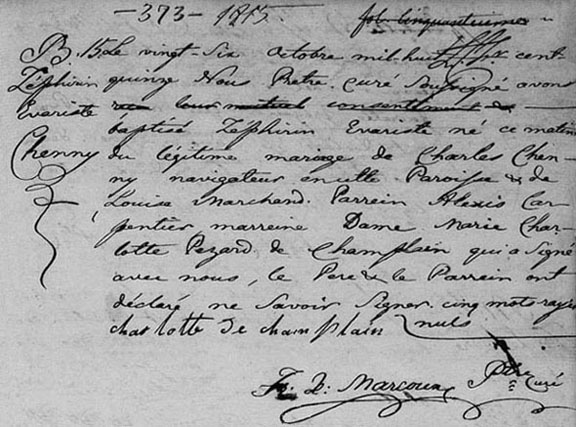 - 373 - 1815.
fol. cinquantieme
B. 55 Le vingt-six octobre mil huit cent
Zéphirin quinze Nous Prêtre curé soussigné avons
Evariste reçu leur mutuel consentement &
baptisé Zéphirin Evariste né ce matin
Chenny du légitime mariage de Charles Chen-
ny navigateur en cette Paroisse & de
Louise Marchand. Parrein Alexis Car-
pentier, marreine Dame Marie Char-
lotte Pezard de Champlain qui a signé
avec nous, le Pere & le Parrein ont
déclaré ne savoir signer. cinq mots rayés
charlotte de champlain nuls
Ptre curé